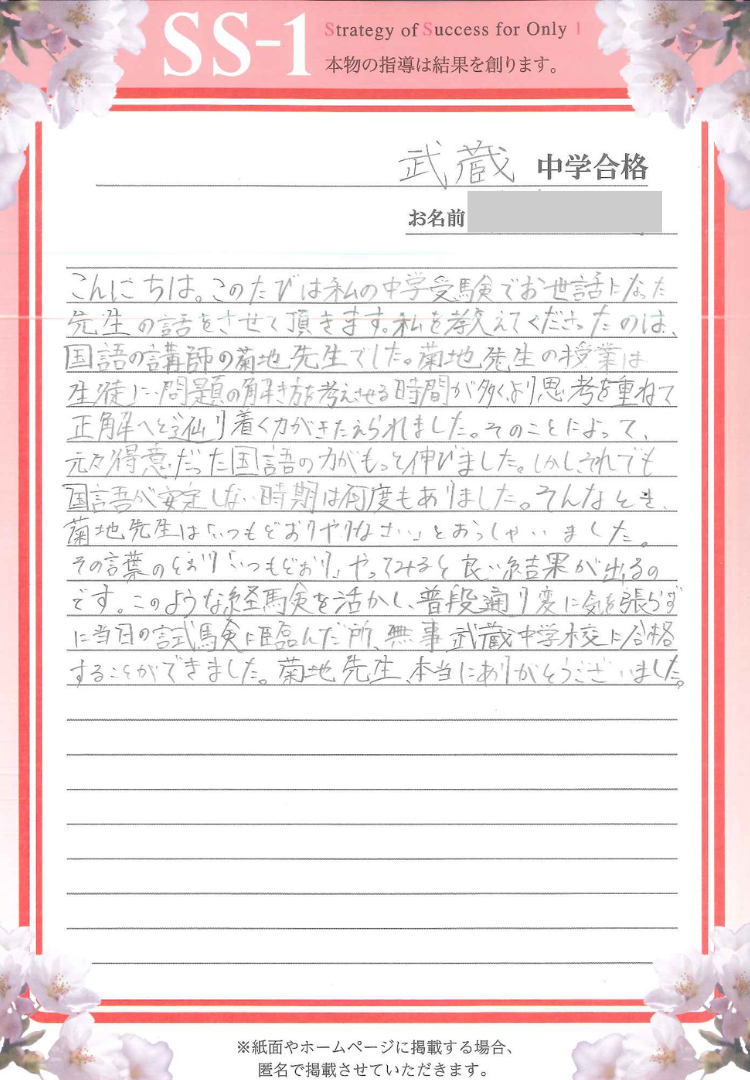 SS-1
Strategy of Success for Only 1
本物の指導は結果を創ります。
武蔵 中学合格
お名前
こんにちは。このたびは私の中学受験でお世話になった
先生の話をさせて頂きます。私を教えてくださったのは、
国語の講師の菊地先生でした。菊地先生の授業は
生徒に問題の解き方を考えさせる時間が多くより思考を重ねて
正解へと辿り着く力がきたえられました。そのことによって、
元々得意だった国語の力がもっと伸びました。しかし、それでも
国語が安定しない時期は何度もありました。そんなとき、
菊地先生は「いつもどおりやりなさい」とおっしゃいました。
その言葉のとおり「いつもどおり」やってみると良い結果が出るの
です。このような経験を活かし、普段通り変に気を張らず
に当日の試験に臨んだ所、無事武蔵中学校に合格
することができました。菊地先生、本当にありがとうございました。
※紙面やホームページに掲載する場合、
匿名で掲載させていただきます。